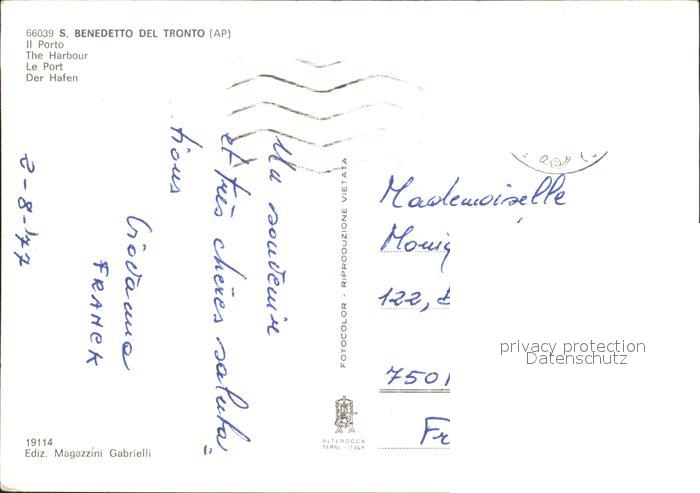 66039 S. BENEDETTO DEL TRONTO (AP)
Il Porto
The Harbour
Le Port
Der Hafen
Un souvenir
et très chères saluta=
tions
Giovanna
FRANCK
2-8-77
FOTOCOLOR - RIPRODUZIONE VIETATA
Mademoiselle
122,
privacy protection
Datenschutz
ALTEROCCA
TERNI - ITALY
19114
Ediz. Magazzini Gabrielli